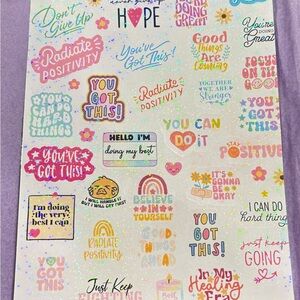 Don't
Give Up
HOPE
DOING
GREAT
You're
Doing
Great!
Radiate
POSITIVITY
You've
Got This!
Good
Things
Are
Coming
FOCUS
ON THE
GOOD
YOU CAN
DO HARD
THINGS
YOU
GOT
THIS!
Radiate
POSITIVITY
TOGETHER
WE ARE
Stronger
YOU
GOT
THIS!
YOU'VE
GOT THIS!
HELLO I'M
doing my best
YOU CAN
DO IT
STAY
POSITIVE
I'm doing
the very
best I can
I WILL HANDLE IT
BUT I WILL CRY FIRST
BELIEVE
IN
YOURSELF
IT'S
GONNA BE
OKAY
I CAN DO
hard things
YOU
GOT
THIS
RADIATE
Positivity
GOOD
THINGS
AHEAD
YOU
GOT
THIS!
just keep
GOING
Just Keep
FIGHTING
In My
Healing
Era